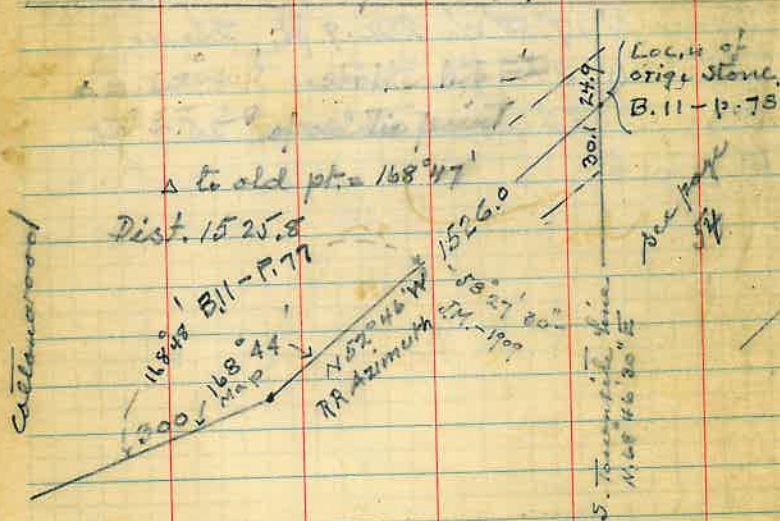 Loc,n of
orig. Stone.
B.11-p.78
24.9
30.1
∆ to old pt. = 168°47'
Dist. 1525.8
1526.0
See page
54
168°48' B.11-P.77
168°44'
Map
300
N 52°46' W
RR Azimuth
58°27'30"
J.M.-1909
S. Townsite line
N. 68°46'30" E